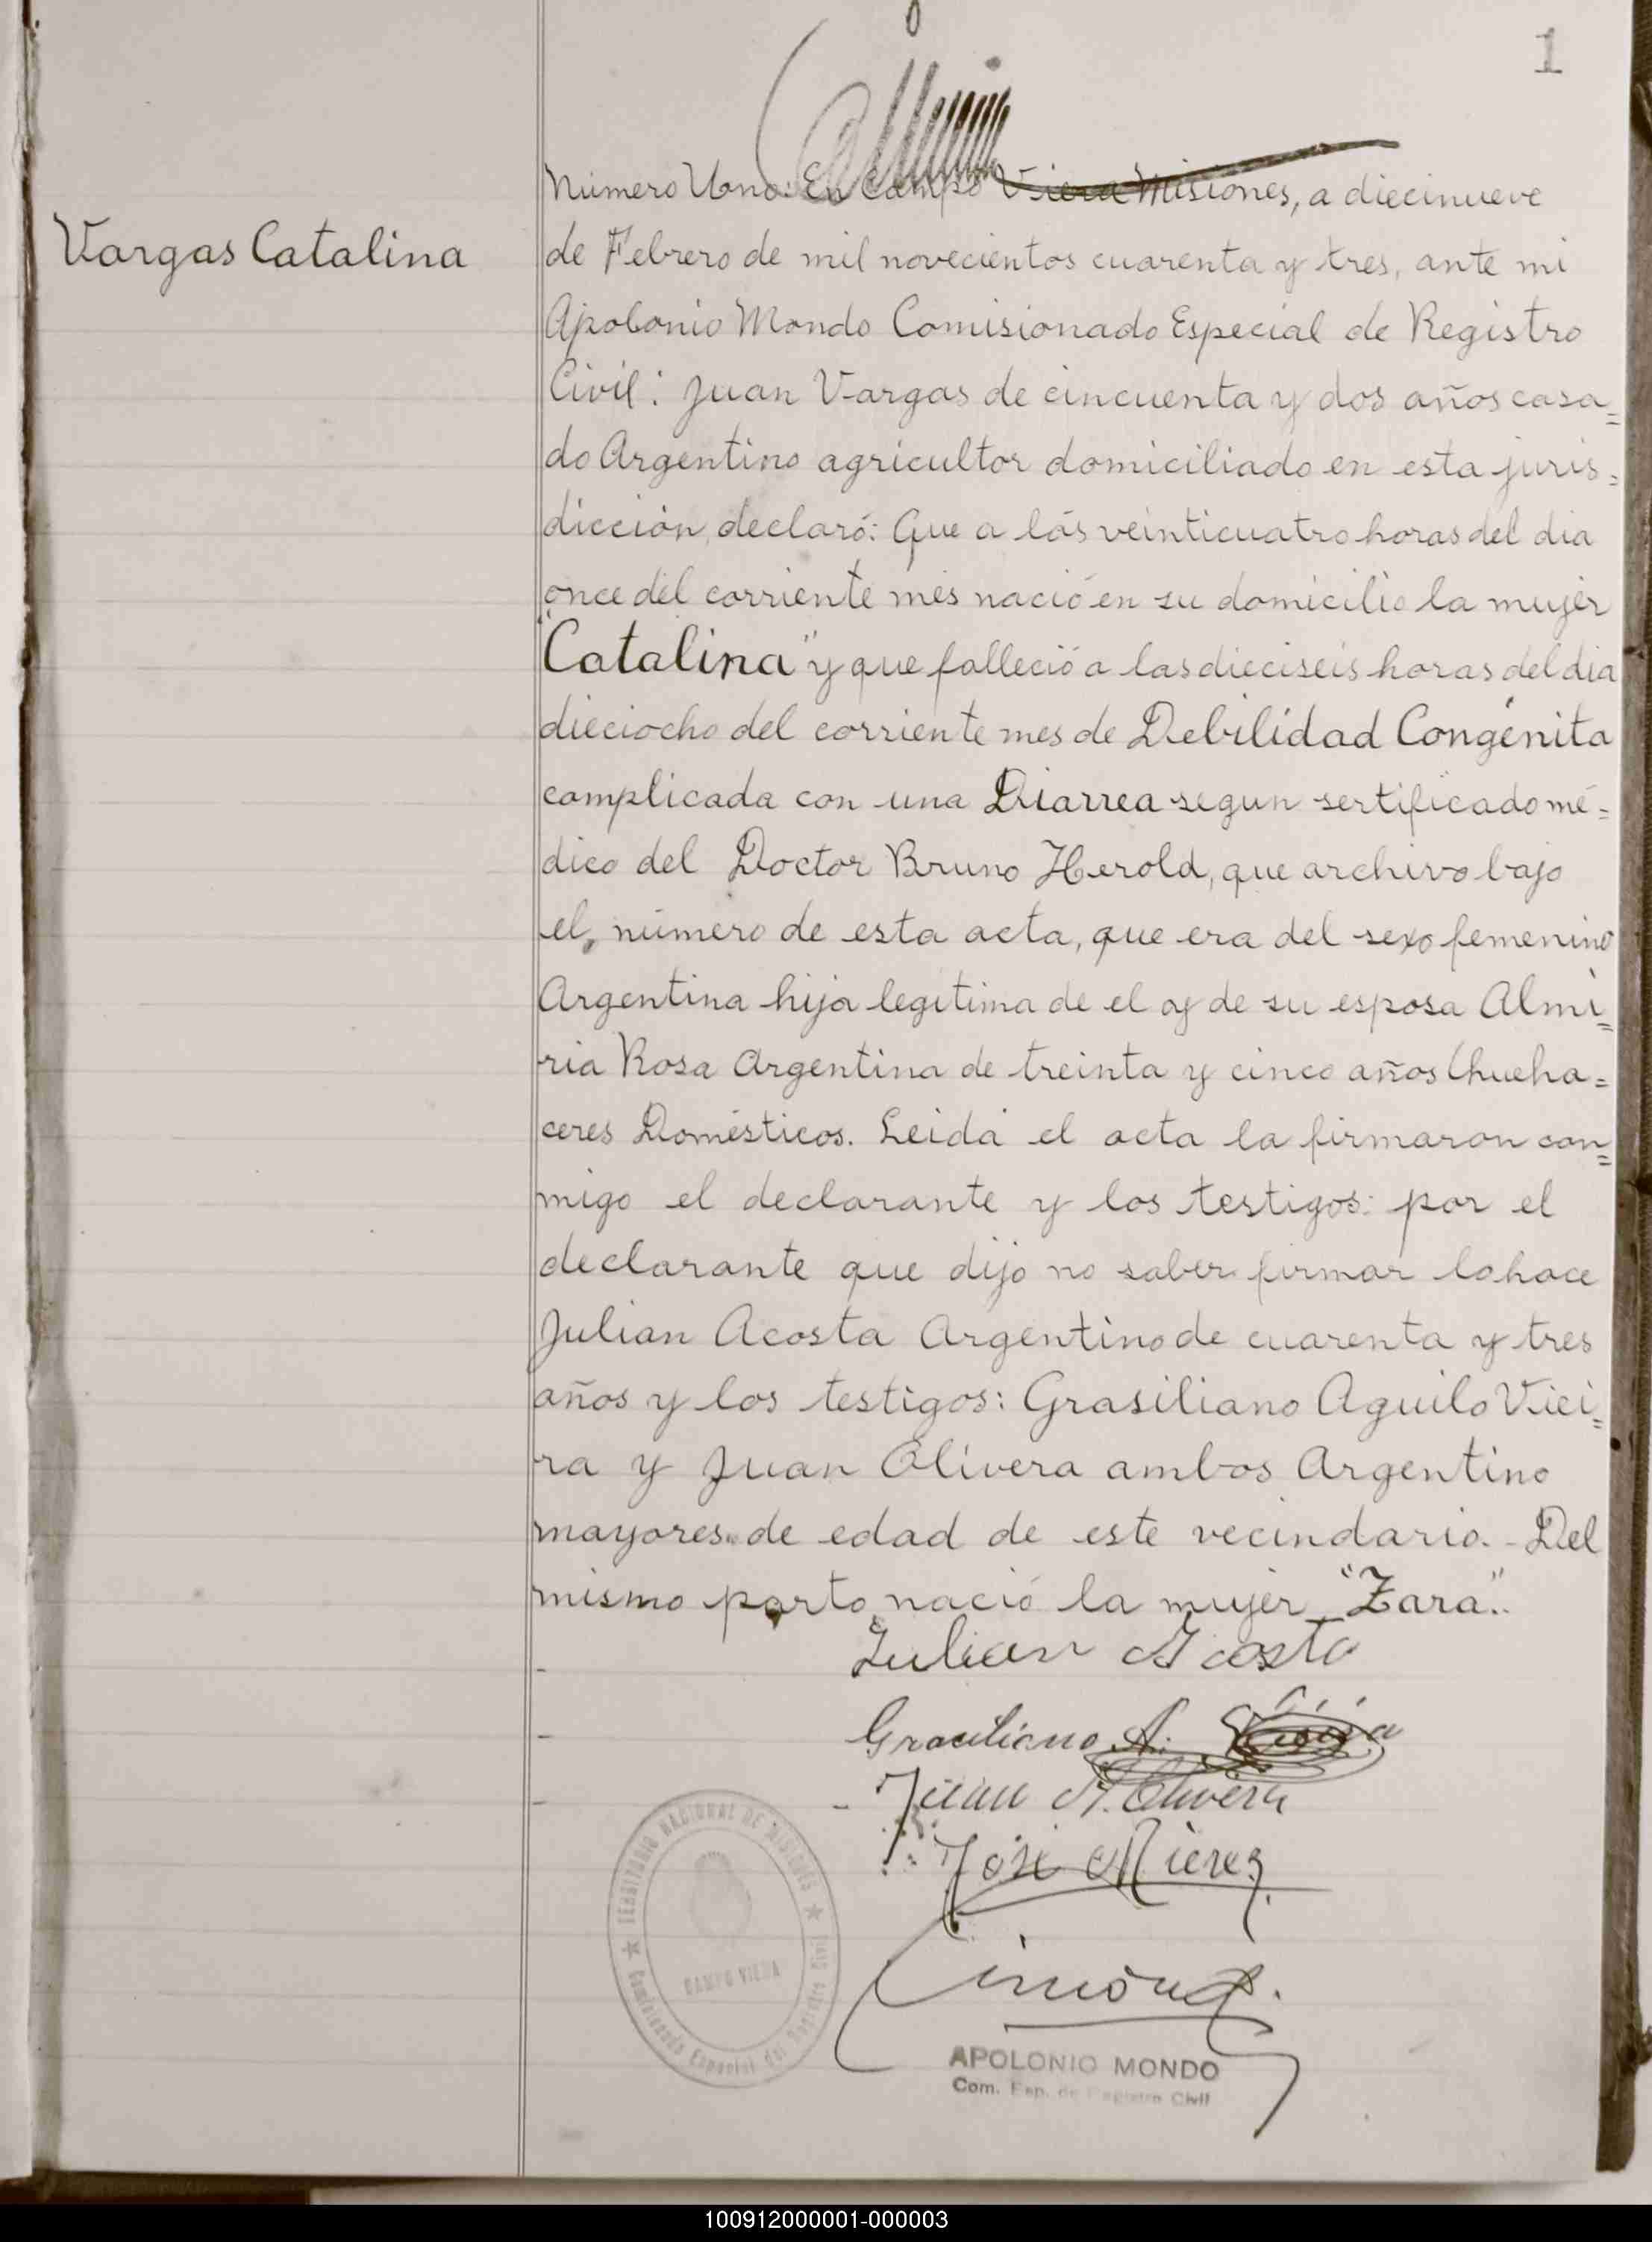 1
Vargas Catalina
Número Uno: En Campo Viera Misiones, a diecinueve
de Febrero de mil novecientos cuarenta y tres, ante mi
Apolonio Mondo Comisionado Especial de Registro
Civil: Juan Vargas de cincuenta y dos años casa=
do Argentino agricultor domiciliado en esta juris=
dicción, declaró: Que a lás veinticuatro horas del dia
once del corriente mes nació en su domicilio la mujer
"Catalina" y que falleció a las dieciseis horas del dia
dieciocho del corriente mes de Debilidad Congénita
complicada con una Diarrea segun sertificado mé=
dico del Doctor Bruno Herold, que archivo bajo
el, número de esta acta, que era del sexo femenino
Argentina hija legitima de el y de su esposa Almi=
ria Rosa Argentina de treinta y cinco años Chueha=
ceres Domésticos. Leida el acta la firmaron con=
migo el declarante y los testigos: por el
declarante que dijo no saber firmar lo hace
Julian Acosta Argentino de cuarenta y tres
años y los testigos: Grasiliano Aguilo Viei=
ra y Juan Olivera ambos Argentino
mayores de edad de este vecindario. - Del
mismo parto nació la mujer "Zara".
Julian Acosta
A.
Juan A. Olivera
José Mierez
TERRITORIO NACIONAL DE MISIONES
CAMPO VIERA
Comisionado Especial del Registro Civil
APOLONIO MONDO
Com. Esp. de Registro Civil
100912000001-000003